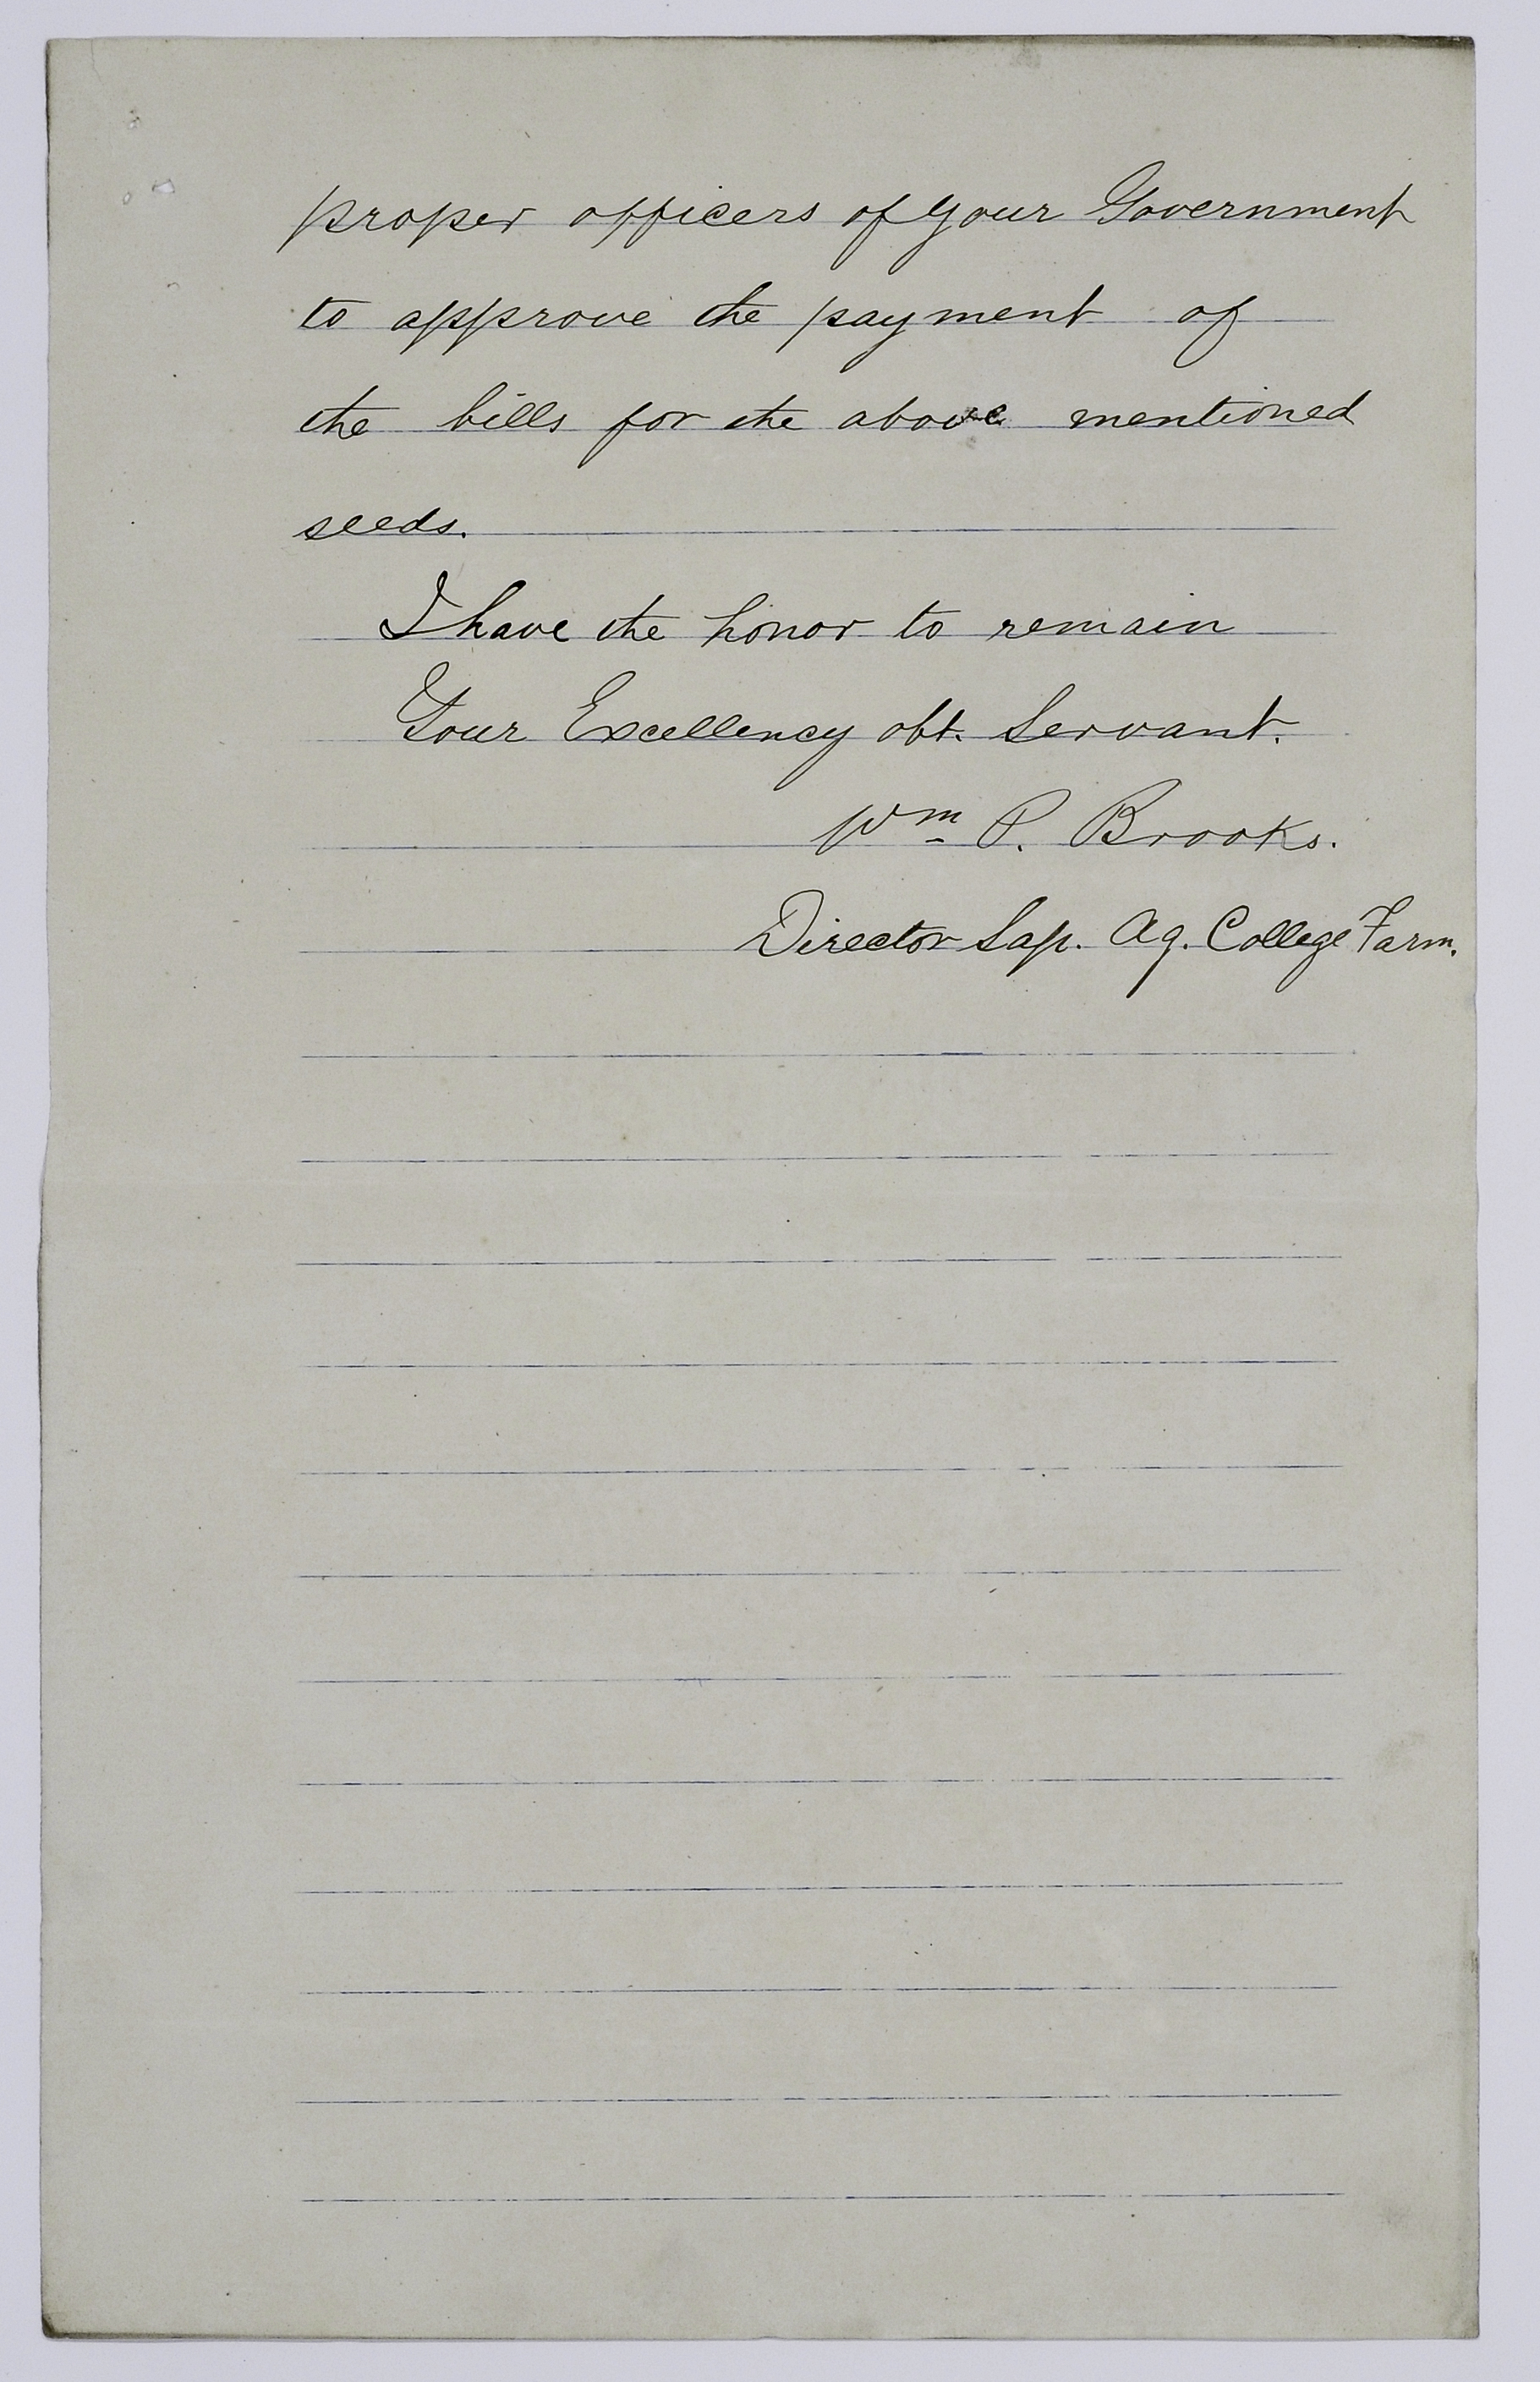 proper officers of your Government
to approve the payment of
the bills for the above mentioned
seeds.
I have the honor to remain
Your Excellency obt. Servant.
Wm P. Brooks.
Director Sap. Ag. College Farm.